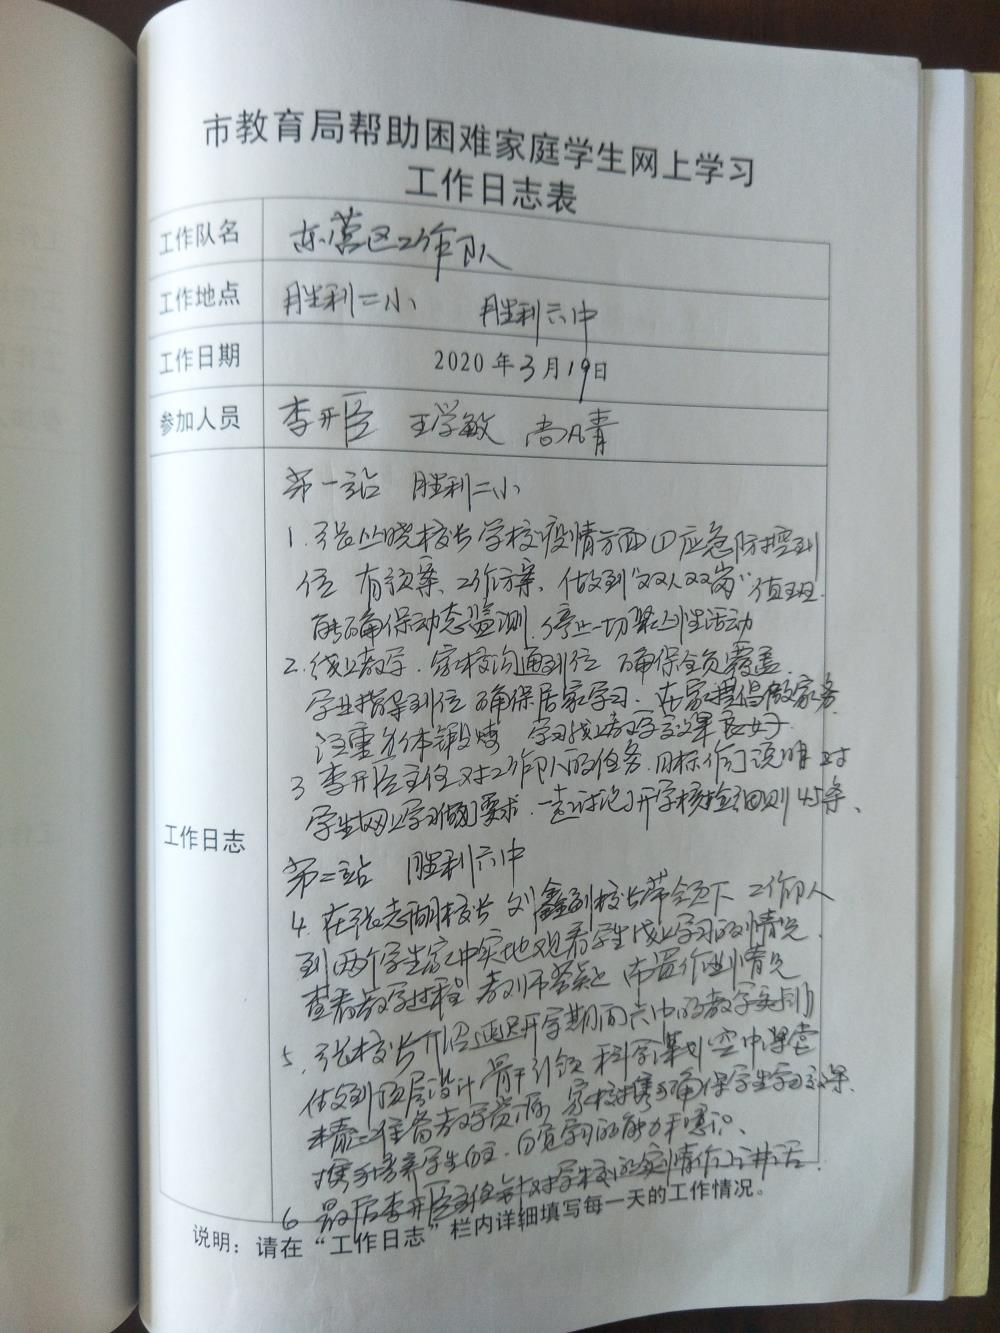 市教育局帮助困难家庭学生网上学习
工作日志表
工作队名 东营区工作队
工作地点 胜利二小 胜利六中
工作日期 2020年3月19日
参加人员 李开臣 王学敏 尚凡青
工作日志
第一站 胜利二小
1. 张丛晓校长 学校疫情方面①应急防控到
位 有预案、工作方案、做到“双人双岗”值班.
能确保动态监测,停止一切聚集性活动
2. 线上教学.家校沟通到位 确保全员覆盖.
学业指导到位 确保居家学习.在家提倡做家务
注重身体锻炼 学习线上教学效果良好.
3 李开臣主任对工作队的任务.目标作了说明 对
学生网上学习做了要求.一起讨论了开学核检细则45条、
第二站 胜利六中
4. 在张志明校长 刘鑫副校长带领下 工作队
到两个学生家中实地观看学生线上学习的情况.
查看教学过程 教师答疑 布置作业情况
5. 张校长介绍延迟开学期间六中的教学实
做到顶层设计 骨干引领 科学谋划 空中课堂
准备教学资源 家校携手确保学生学习效果.
携手培养学生自主.自觉学习的能力和意识、
6 最后李开臣主任针对学校的实情作了讲话.
说明：请在“工作日志”栏内详细填写每一天的工作情况。